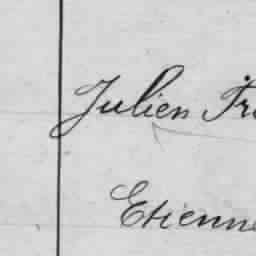 Julien Fr
Etienne